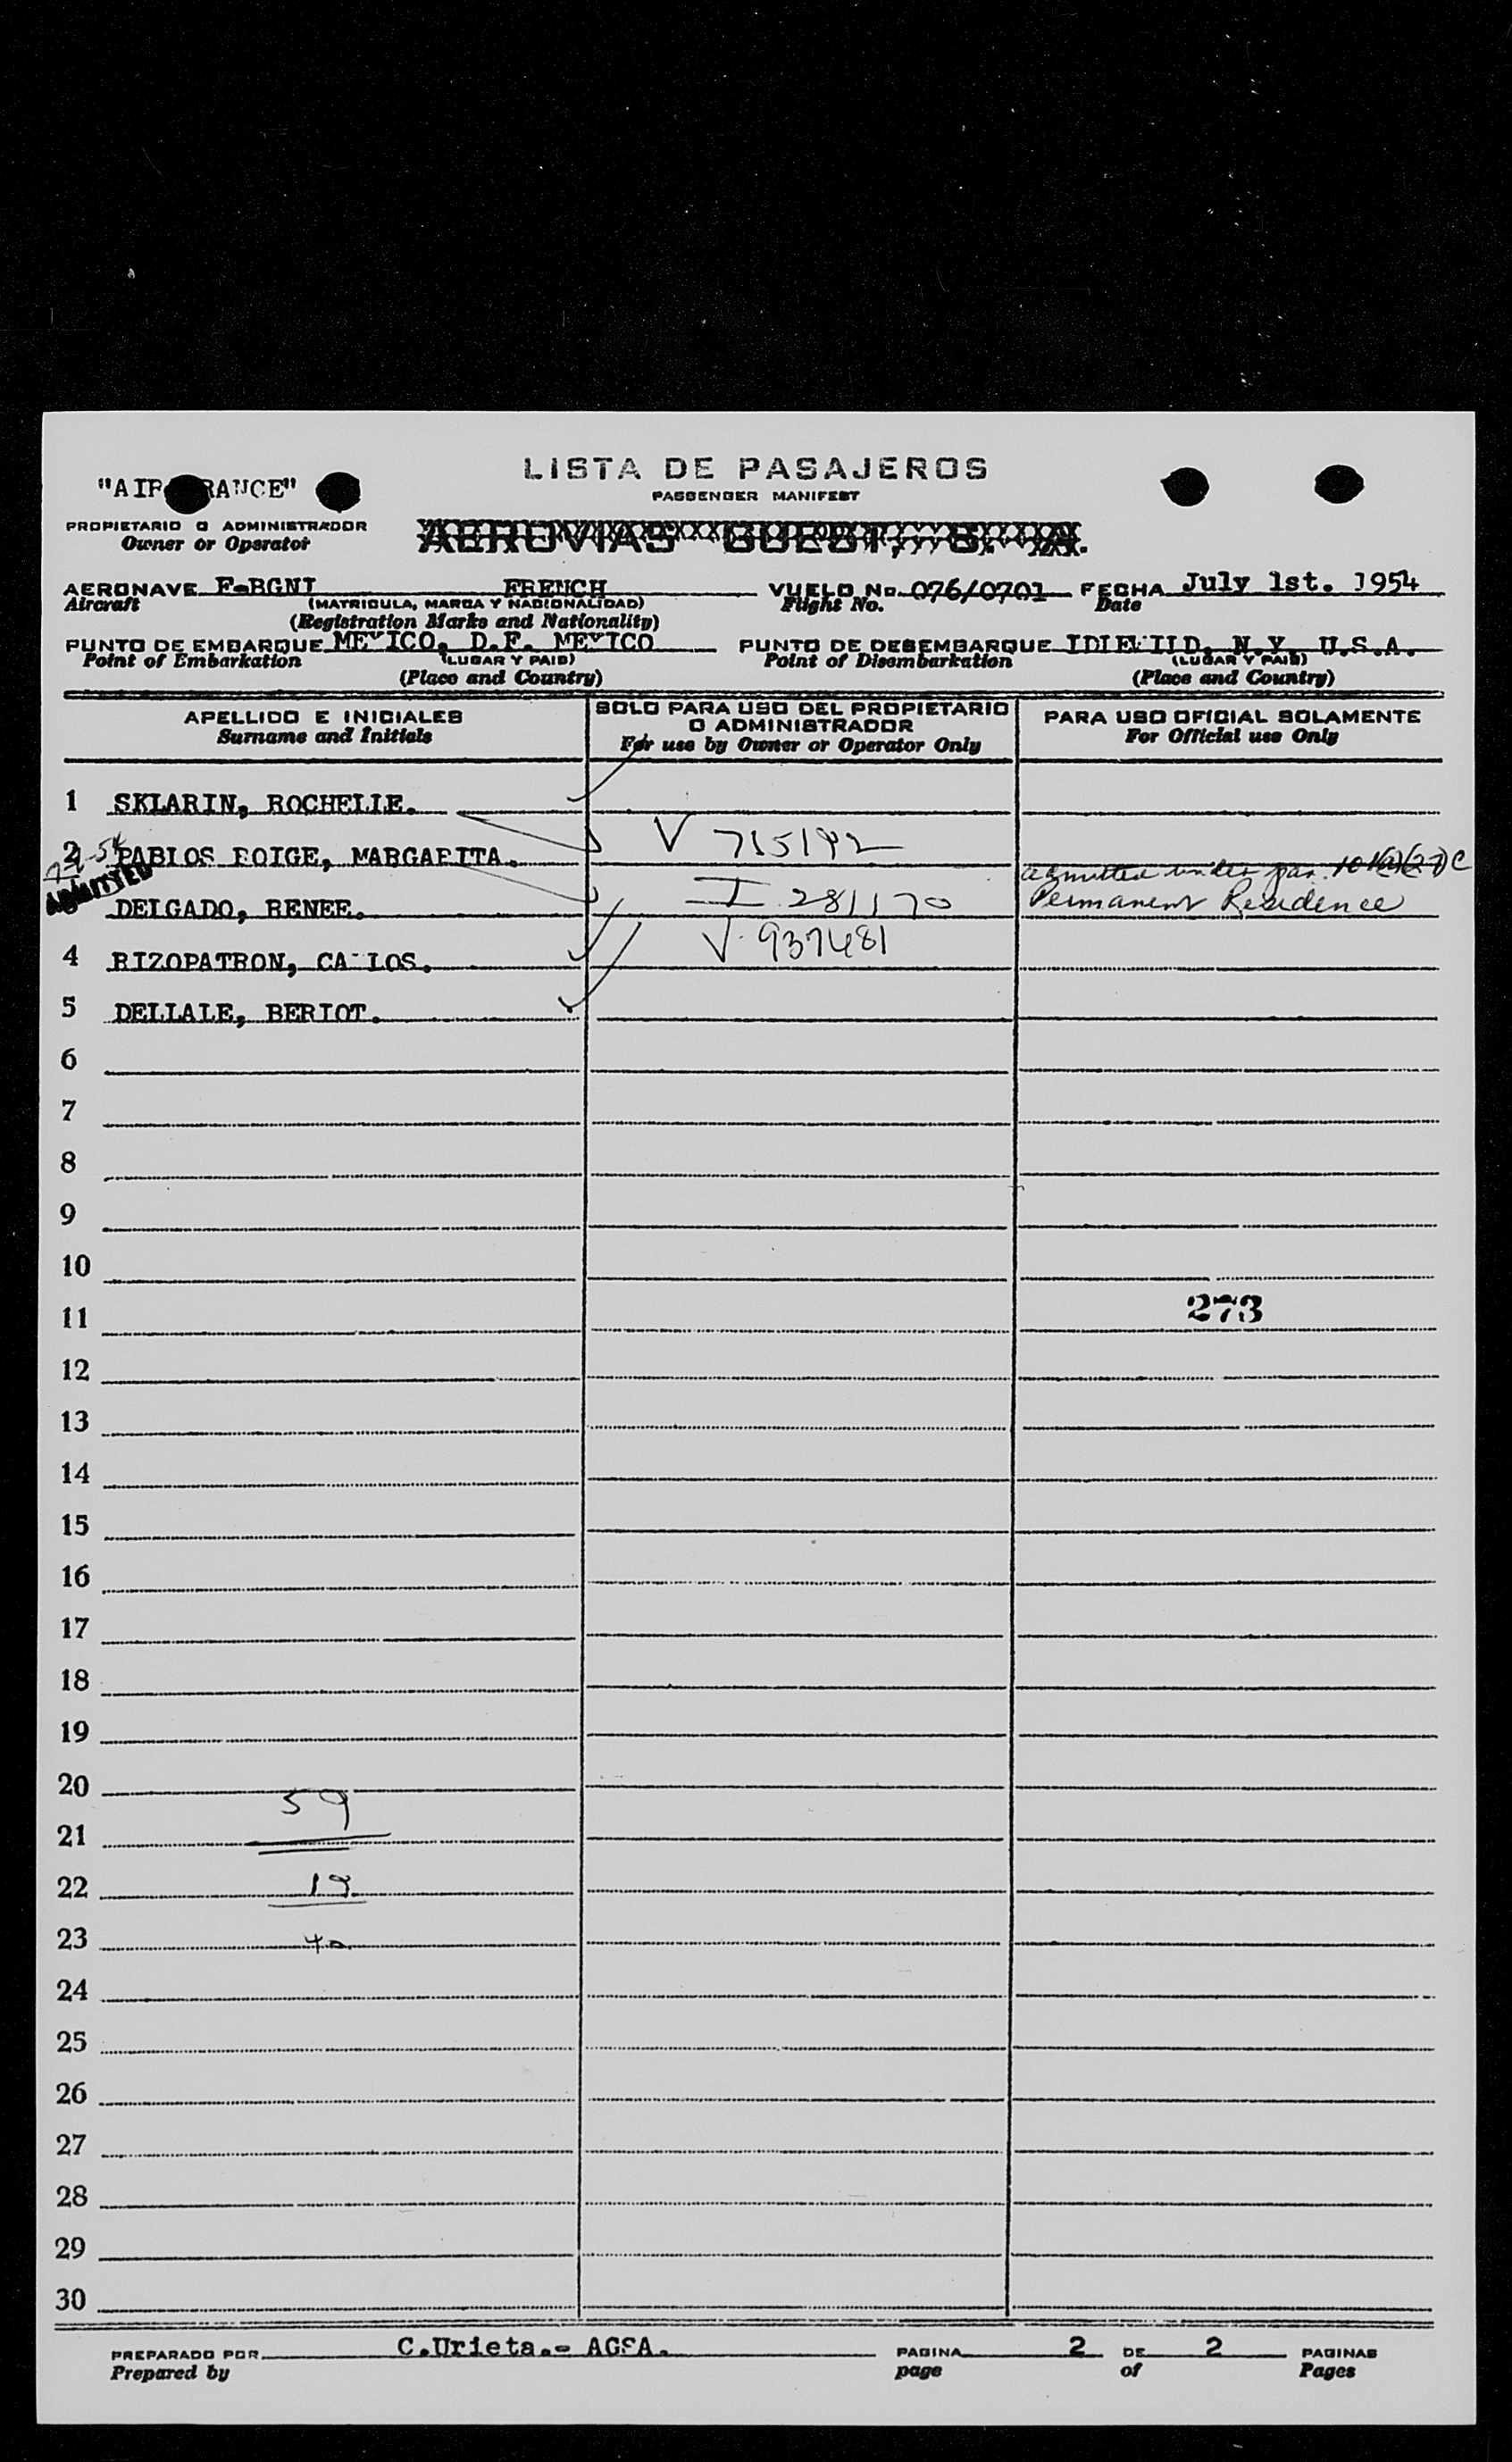 LISTA DE PASAJEROS
PASSENGER MANIFEST
"AIR FRANCE"
PROPIETARIO O ADMINISTRADOR
Owner or Operator
AEROVIAS GUEST, S. A.
AERONAVE F-BGNI FRENCH VUELO No. 076/0701 FECHA July 1st. 1954
Aircraft (MATRICULA, MARCA Y NACIONALIDAD) Flight No. Date
(Registration Marks and Nationality)
PUNTO DE EMBARQUE MEXICO, D.F. MEXICO PUNTO DE DESEMBARQUE IDLEWILD, N.Y. U.S.A.
Point of Embarkation (LUGAR Y PAIS) Point of Disembarkation (LUGAR Y PAIS)
(Place and Country) (Place and Country)
APELLIDO E INICIALES SOLO PARA USO DEL PROPIETARIO O ADMINISTRADOR PARA USO OFICIAL SOLAMENTE
Surname and Initials For use by Owner or Operator Only For Official use Only
1 SKLARIN, ROCHELLE.
2 PABLOS ROIGE, MARGARITA. V 715192
ADMITTED admitted under par. 101(a)(27)C
3 DELGADO, RENEE. I 281170 Permanent Residence
4 RIZOPATRON, CARLOS. V. 937481
5 DELLALE, BERIOT.
6
7
8
9
10
11 273
12
13
14
15
16
17
18
19
20
59
21
22 19
23 40
24
25
26
27
28
29
30
PREPARADO POR C.Urieta.- AGSA. PAGINA 2 DE 2 PAGINAS
Prepared by page of Pages